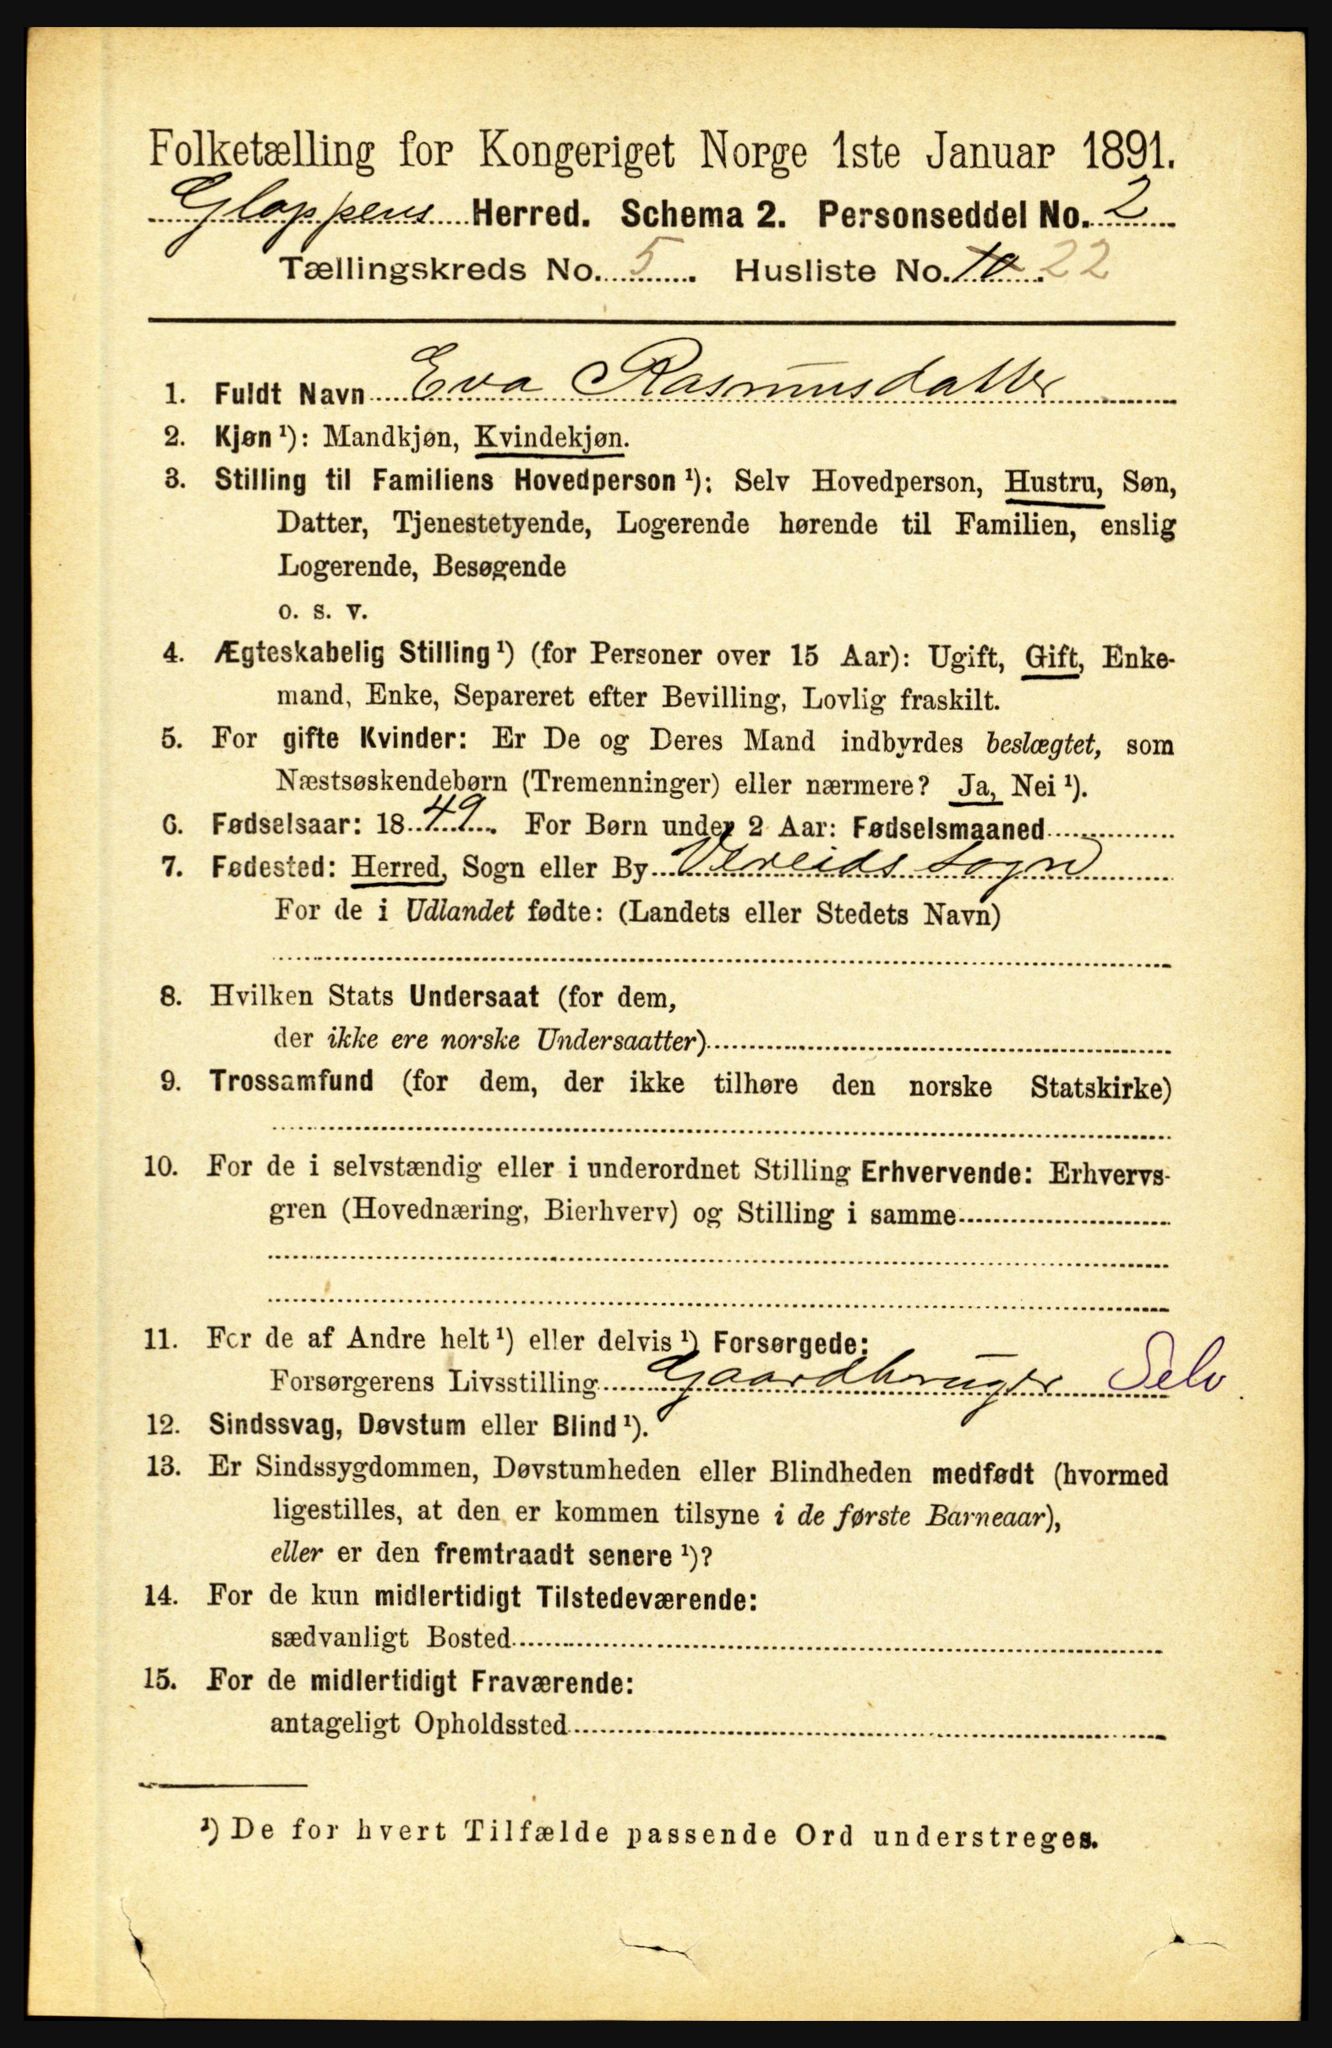 Folketælling for Kongeriget Norge 1ste Januar 1891.
Gloppens Herred. Schema 2. Personseddel No. 2
Tællingskreds No. 5. Husliste No. 10. 22
1. Fuldt Navn Eva Rasmusdatter
2. Kjøn ¹): Mandkjøn, Kvindekjøn.
3. Stilling til Familiens Hovedperson ¹): Selv Hovedperson, Hustru, Søn,
Datter, Tjenestetyende, Logerende hørende til Familien, enslig
Logerende, Besøgende
o. s. v.
4. Ægteskabelig Stilling ¹) (for Personer over 15 Aar): Ugift, Gift, Enke-
mand, Enke, Separeret efter Bevilling, Lovlig fraskilt.
5. For gifte Kvinder: Er De og Deres Mand indbyrdes beslægtet, som
Næstsøskendebørn (Tremenninger) eller nærmere? Ja, Nei ¹).
6. Fødselsaar: 1849. For Børn under 2 Aar: Fødselsmaaned
7. Fødested: Herred, Sogn eller By Vereids sogn
For de i Udlandet fødte: (Landets eller Stedets Navn)
8. Hvilken Stats Undersaat (for dem,
der ikke ere norske Undersaatter)
9. Trossamfund (for dem, der ikke tilhøre den norske Statskirke)
10. For de i selvstændig eller i underordnet Stilling Erhvervende: Erhvervs-
gren (Hovednæring, Bierhverv) og Stilling i samme
11. For de af Andre helt ¹) eller delvis ¹) Forsørgede:
Forsørgerens Livsstilling Gaardbruger Selv
12. Sindssvag, Døvstum eller Blind ¹).
13. Er Sindssygdommen, Døvstumheden eller Blindheden medfødt (hvormed
ligestilles, at den er kommen tilsyne i de første Barneaar),
eller er den fremtraadt senere ¹)?
14. For de kun midlertidigt Tilstedeværende:
sædvanligt Bosted
15. For de midlertidigt Fraværende:
antageligt Opholdssted
¹) De for hvert Tilfælde passende Ord understreges.